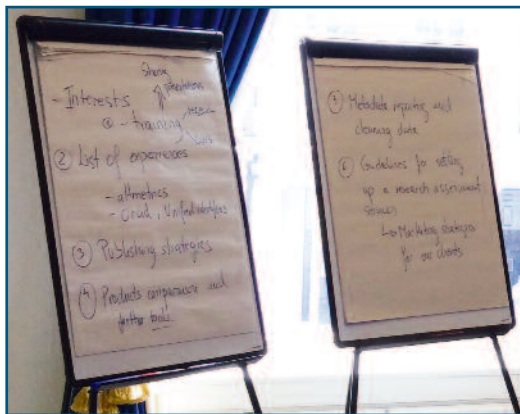 Sharing
presentations
- Interests
- training
② List of experiences
- altmetrics
- Orcid, Unified identifiers
③ Publishing strategies
④ Products comparison and
further tools
Metadata reporting and
cleaning data
⑥ Guidelines for setting
up a research assessment
services
↳ Marketing strategies
for our clients